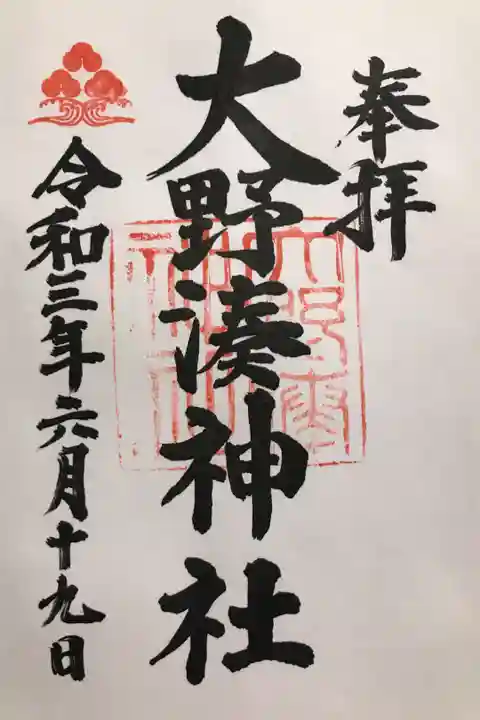 奉拝
大野湊神社
令和三年六月十九日